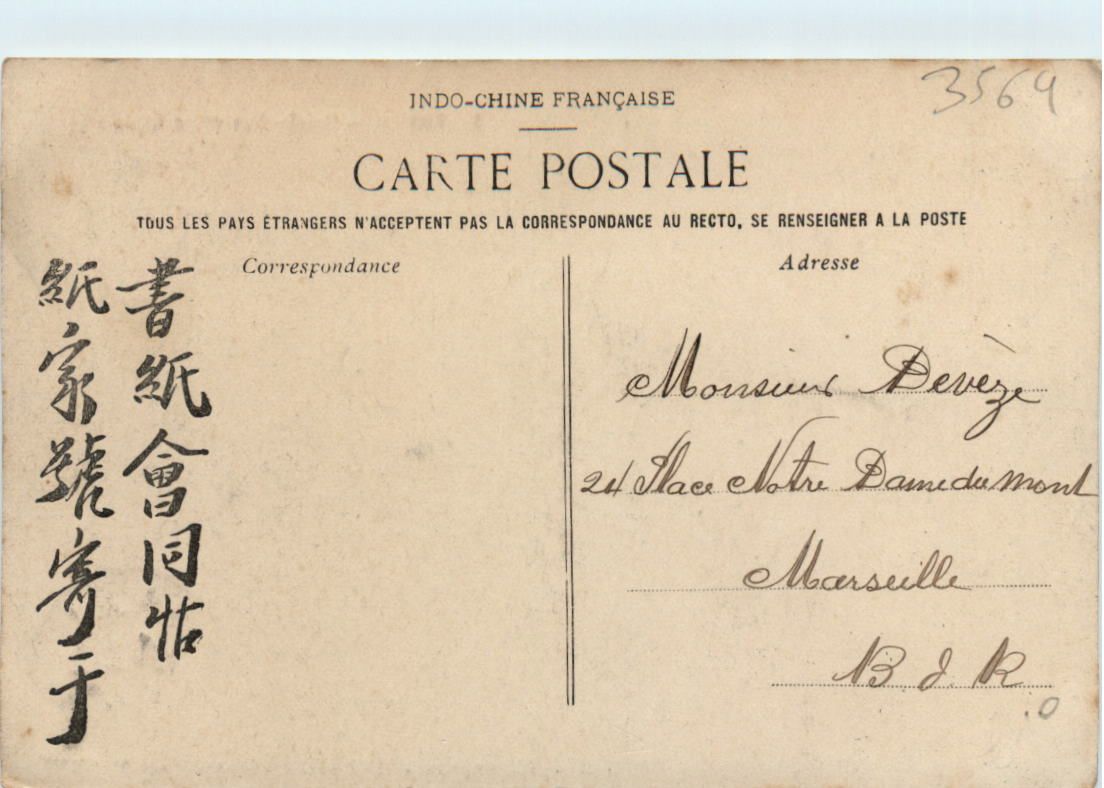 3569
INDO-CHINE FRANÇAISE
CARTE POSTALE
TOUS LES PAYS ÉTRANGERS N'ACCEPTENT PAS LA CORRESPONDANCE AU RECTO, SE RENSEIGNER A LA POSTE
Correspondance
書紙會同帖
紙家號寄于
Adresse
Monsieur Devèze
24 Place Notre Dame du Mont
Marseille
B. d. R